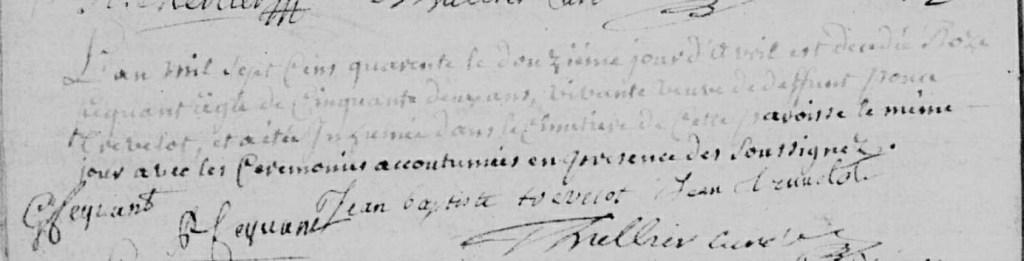 L'an mil sept cens quarente le douziéme jour d'Avril est décedée Roze
Sequant agée de Cinquante deux ans, vivante veuve de deffunt ponce
trevelot, et a étée Inhumée dans le Cimitiere de Cette paroisse le même
jour avec les Ceremonies accoutumées en presence des Soussignez.
Sequant
P Sequant Jean baptiste trevelot Jean trevelot
Thellier curé